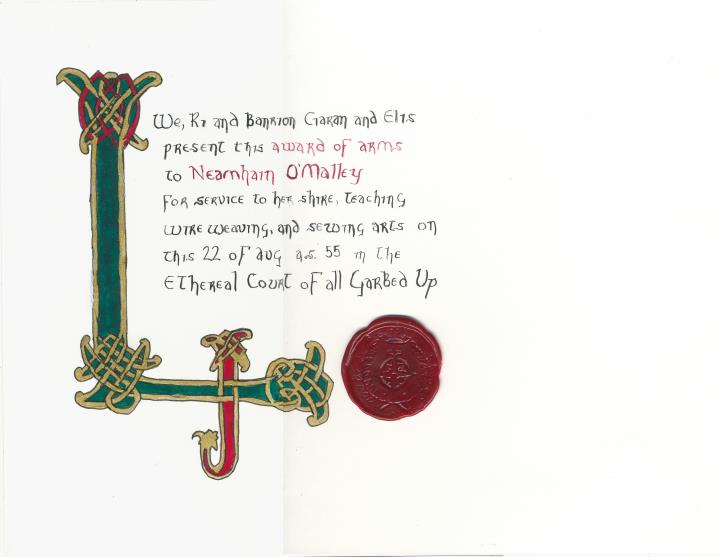 We, Ri and Banrion Ciaran and Elis
present this award of arms
to Nearnhain O'Malley
for service to her shire, teaching
wire weaving, and sewing arts on
this 22 of aug a.s. 55 in the
Ethereal Court of all Garbed Up